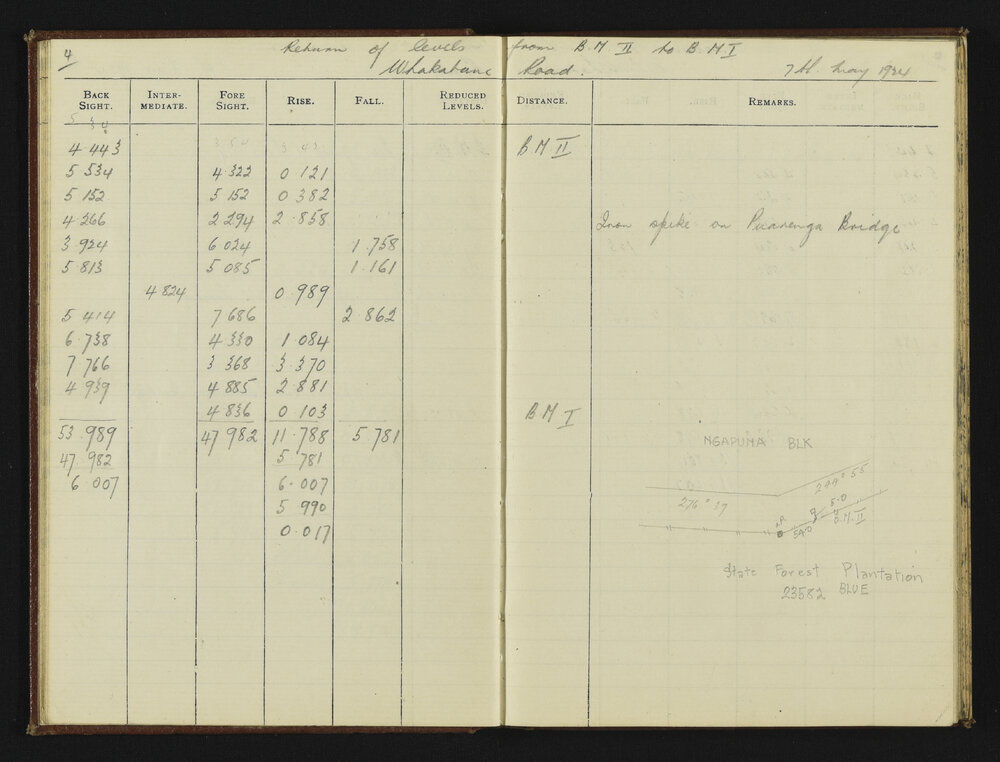 4
Return of levels from B.M II to B.M.I
Whakatane Road. 7th May 1924
BACK SIGHT. INTERMEDIATE. FORE SIGHT. RISE. FALL. REDUCED LEVELS. DISTANCE. REMARKS.
4 443 B.M II
5 534 4 322 0 121
5 152 5 152 0 382
4 266 2 294 2 858 Iron spike on Puarenga Bridge
3 924 6 024 1.758
5 813 5 085 1.161
4 824 0 989
5 414 7 686 2 862
6 738 4 330 1 084
7 766 3 368 3 370
4 939 4 885 2 881
4 836 0 103 B.M I
53 989 47 982 11.788 5 781
47 982 5 781
6 007 6.007
5 990
0.017
NGAPUNA BLK
276° 17 244° 55
5.0
54.0 B.M.II
State Forest Plantation
23582 BLUE